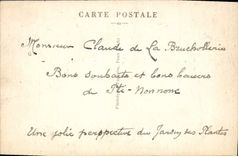 CARTE POSTALE
Monsieur Claude de La Bruchollerie
Bons souhaits et bons baisers
de Pte-Nonnon
Une jolie perspective du Jardin des Plantes